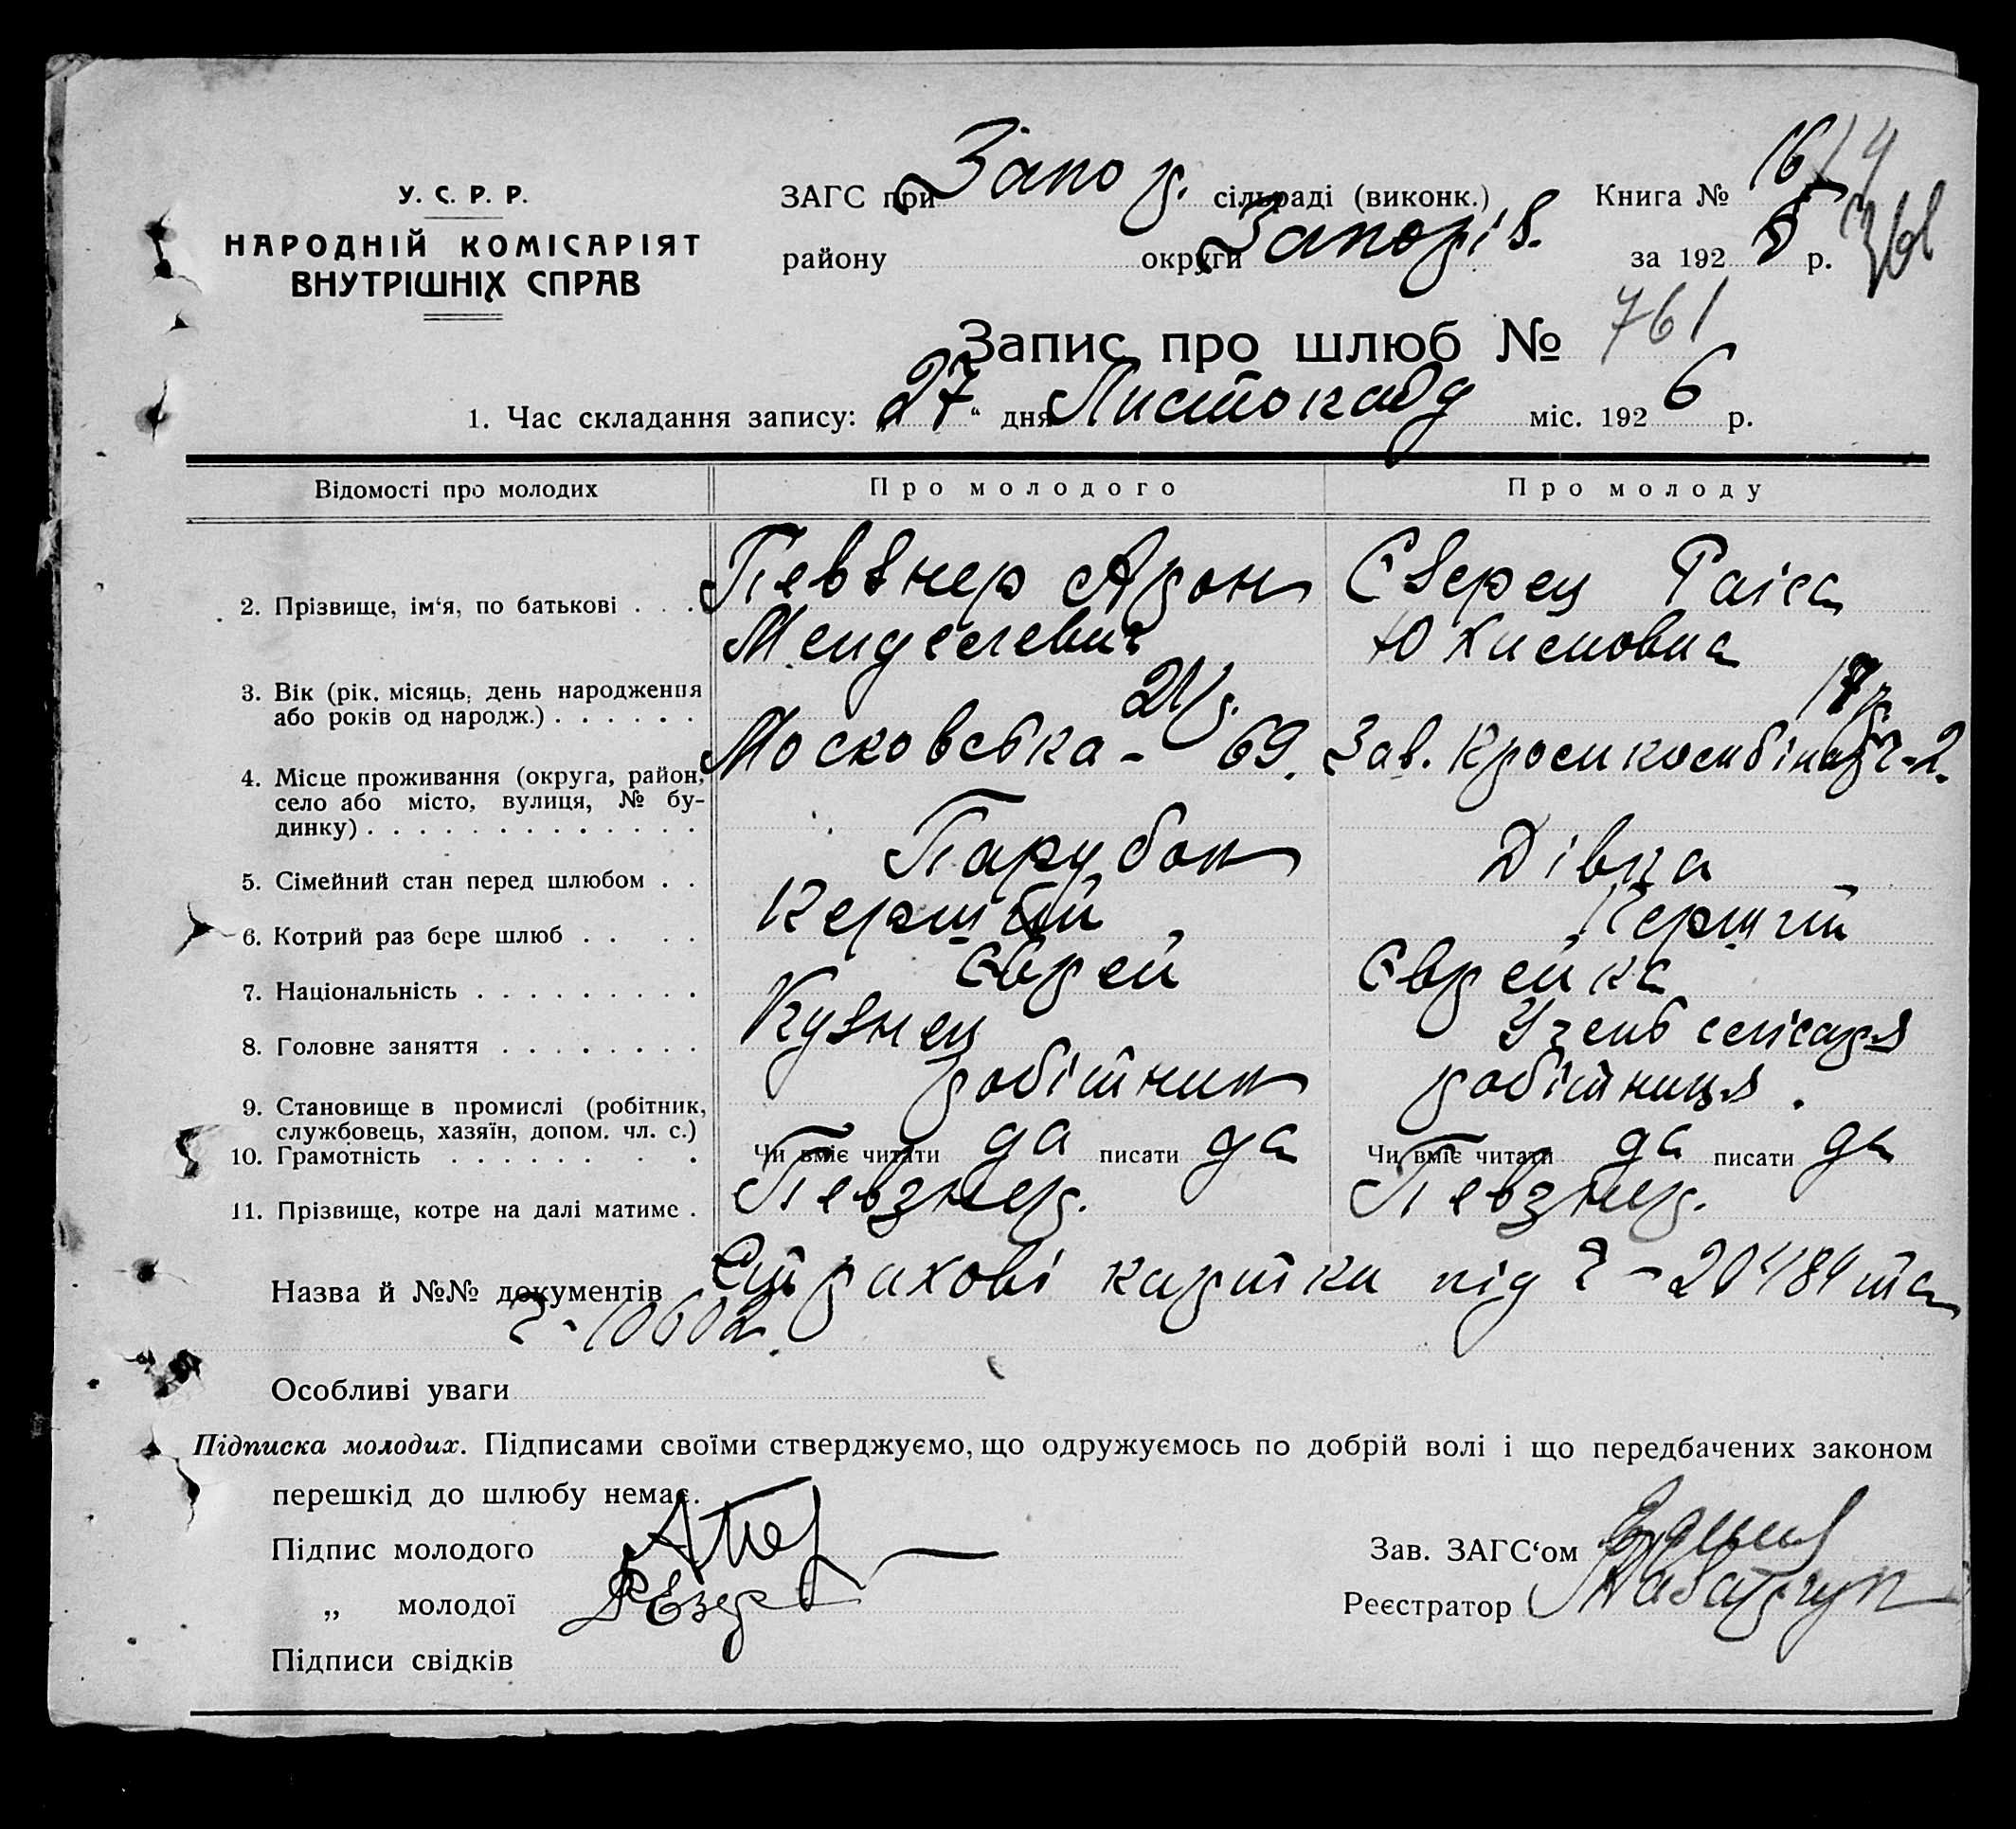 У. С. Р. Р.
НАРОДНІЙ КОМІСАРІЯТ
ВНУТРІШНІХ СПРАВ
ЗАГС при Запор. сільраді (виконк.) Книга № 16
району округи Запоріз. за 192 р.
Запис про шлюб № 761
1. Час складання запису: „27“ дня Листопада міс. 1926 р.
Відомості про молодих Про молодого Про молоду
2. Прізвище, ім‘я, по батькові . . . Певзнер Арон Єзерец Раіса
Менделевич Юхимовна
3. Вік (рік, місяць, день народження
або років од народж.) . . . . . . 21 р. 17 р.
4. Місце проживання (округа, район, Московська - 69. Зав. Кромкомбінат ч-2.
село або місто, вулиця, № бу-
динку) . . . . . . . . . . . . .
5. Сімейний стан перед шлюбом . . Парубок Дівка
6. Котрий раз бере шлюб . . . . Перший Перший
7. Національність . . . . . . . . . Єврей Єврейка
8. Головне заняття . . . . . . . . Кузнец Учень слісаря
9. Становище в промислі (робітник, робітник робітниця.
службовець, хазяїн, допом. чл. с.)
10. Грамотність . . . . . . . . Чи вміє читати да писати да Чи вміє читати да писати да
11. Прізвище, котре на далі матиме . Певзнер. Певзнер.
Назва й №№ документів Страхові картки під ч - 20484 та
ч - 10602.
Особливі уваги
Підписка молодих. Підписами своїми стверджуємо, що одружуємось по добрій волі і що передбачених законом
перешкід до шлюбу немає.
Підпис молодого Зав. ЗАГС‘ом
„ молодої РЕзер Реєстратор
Підписи свідків